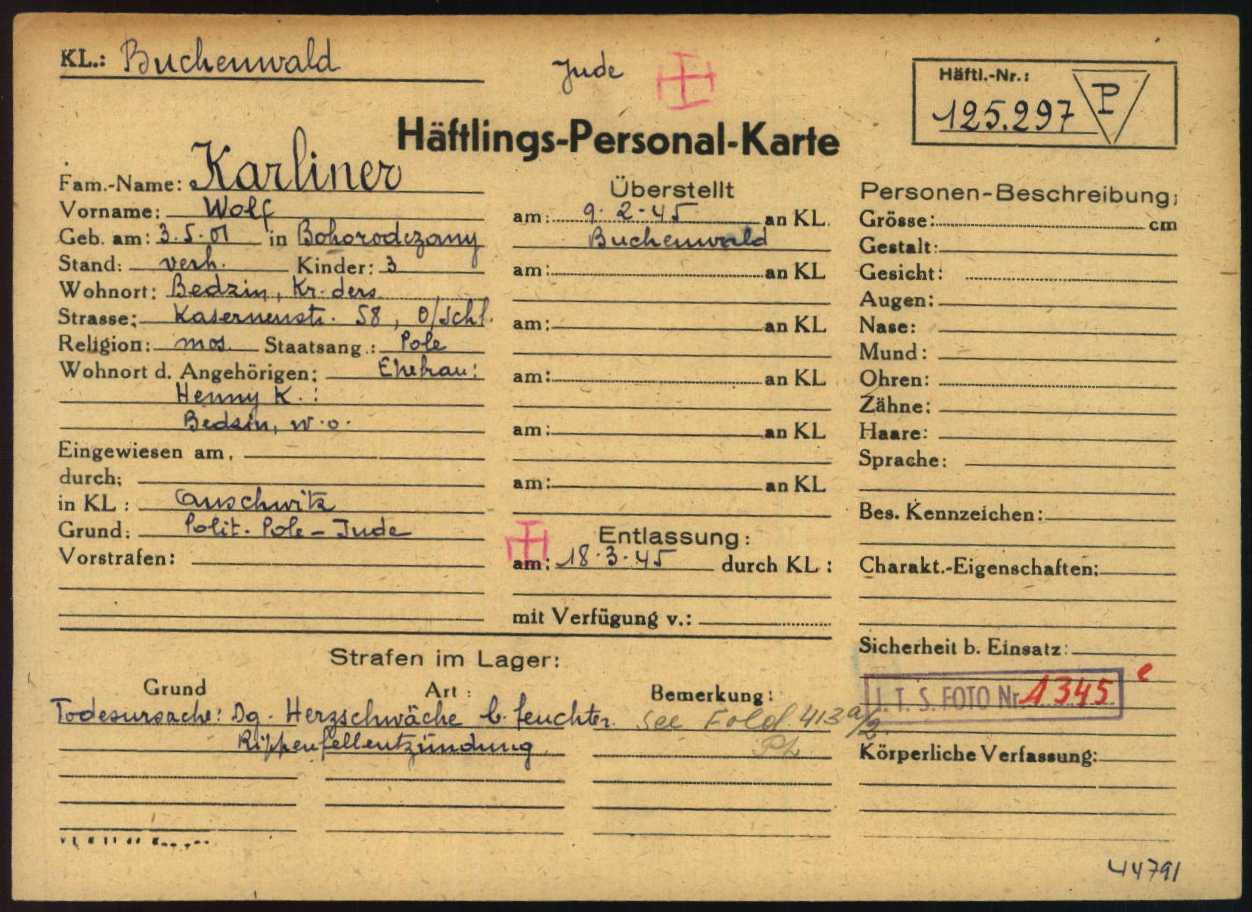 KL.: Buchenwald
Jude
Häftl.-Nr.:
125.297 P
Häftlings-Personal-Karte
Fam.-Name: Karliner
Vorname: Wolf
Geb. am: 3.5.01 in Bohorodczany
Stand: verh. Kinder: 3
Wohnort: Bedzin, Kr. ders.
Strasse: Kasernenstr. 58, O/Schl.
Religion: mos. Staatsang.: Pole
Wohnort d. Angehörigen: Ehefrau:
Henny K.:
Bedzin, w.o.
Eingewiesen am,
durch:
in KL: Auschwitz
Grund: Polit. Pole - Jude
Vorstrafen:
Überstellt
am: 9.2.45 an KL.
Buchenwald
am: an KL
am: an KL
am: an KL
am: an KL
am: an KL
Entlassung:
am: 18.3.45 durch KL:
mit Verfügung v.:
Personen-Beschreibung:
Grösse: cm
Gestalt:
Gesicht:
Augen:
Nase:
Mund:
Ohren:
Zähne:
Haare:
Sprache:
Bes. Kennzeichen:
Charakt.-Eigenschaften:
Sicherheit b. Einsatz:
I.T.S. FOTO Nr. 1345
Körperliche Verfassung:
Strafen im Lager:
Grund Art: Bemerkung:
Todesursache: Dg. Herzschwäche b. feuchter
Rippenfellentzündung
see 413a/2
44791